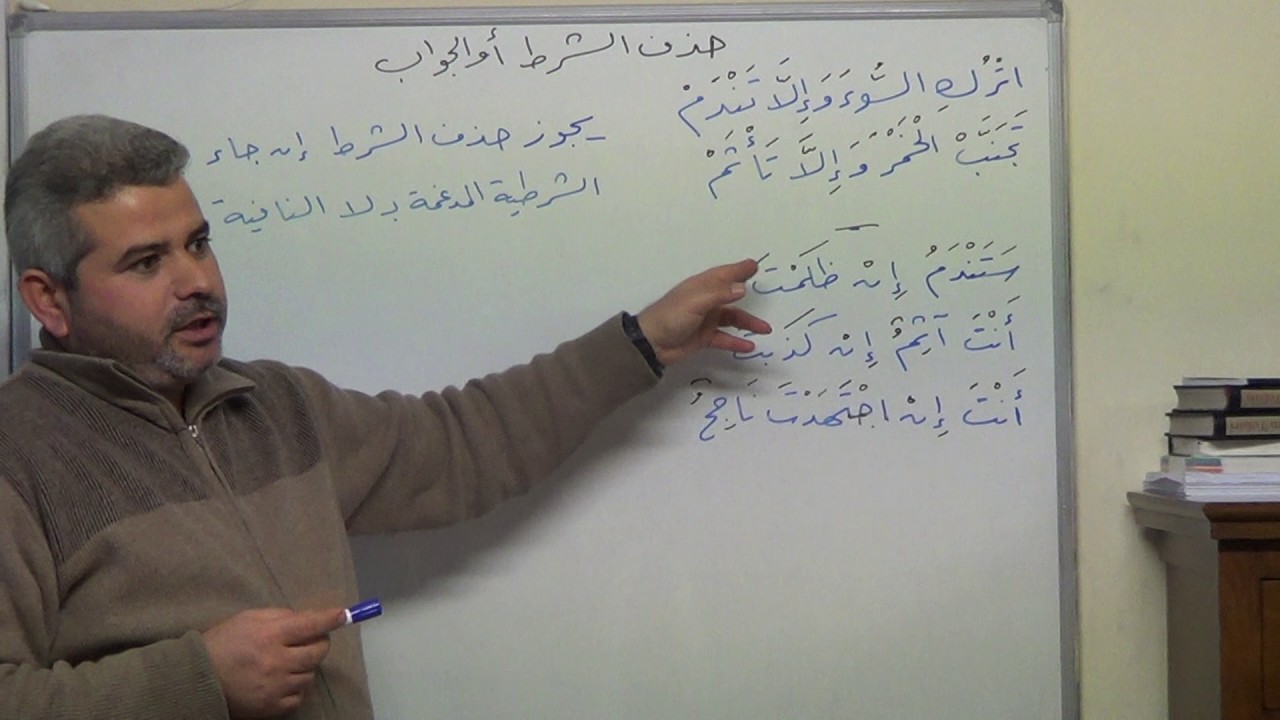 حذف الشرط أو الجواب
اتْرُكِ السُّوءَ وَإِلَّا تَنْدَمْ
تَجَنَّبْ الْخَمْرَ وَإِلَّا تَأْثَمْ
سَتَنْدَمُ إِنْ ظَلَمْتَ
أَنْتَ آثِمٌ إِنْ كَذَبْتَ
أَنْتَ إِنْ اجْتَهَدْتَ نَاجِحٌ
يجوز حذف الشرط إن جاء
الشرطية المدغمة بـ لا النافية